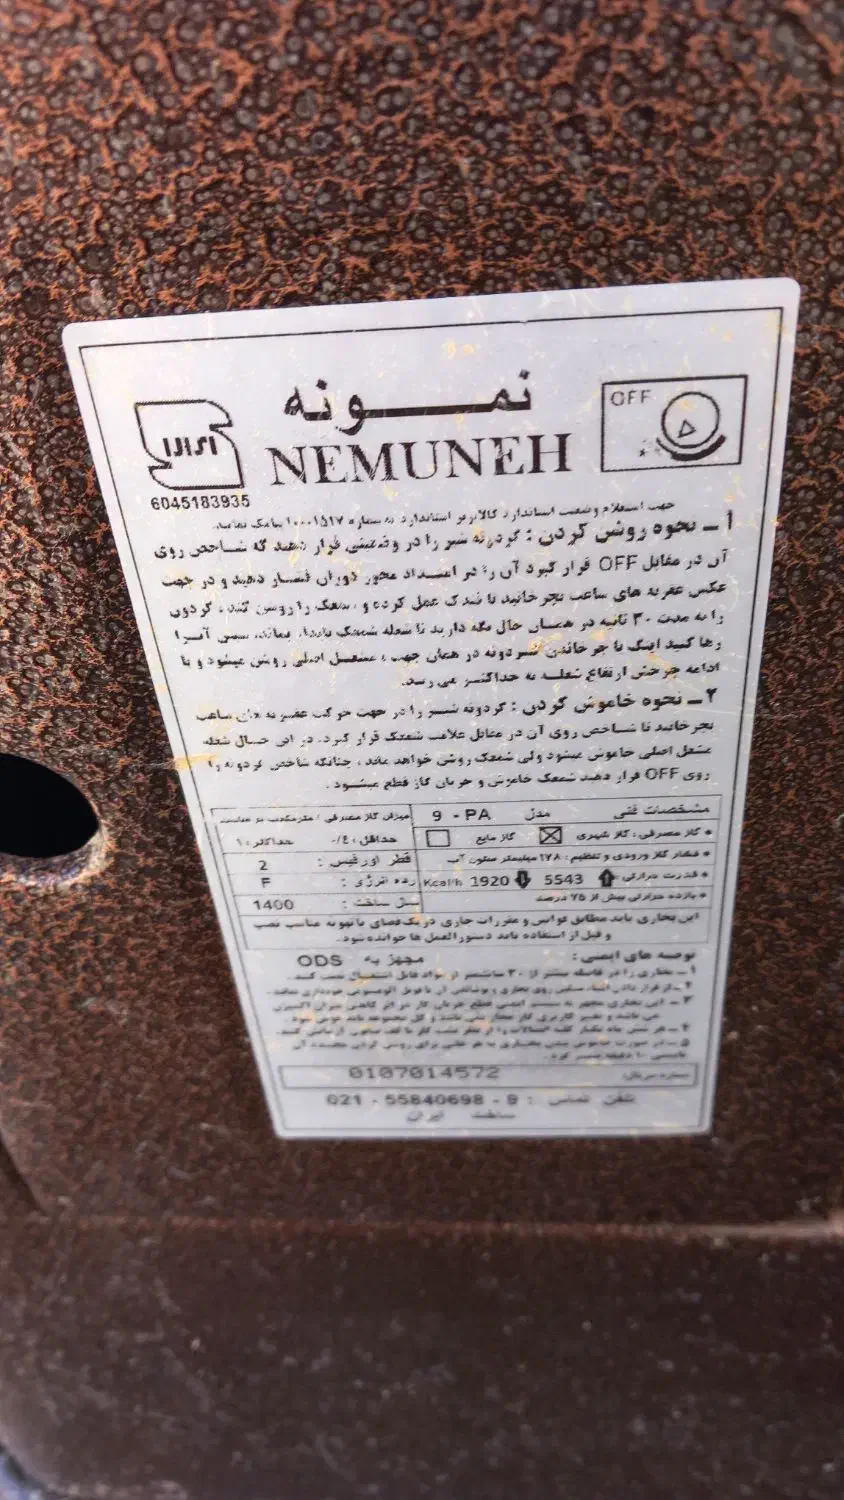 نمـــونه
OFF
NEMUNEH
6045183935
جهت استعلام وضعیت استاندارد کالا برتر استاندارد به شماره ۱۰۰۰۱۵۱۷ پیامک نمایید
۱ ـ نحوه روشن کردن : گردونه شیر را در وضعیتی قرار دهید که شاخص روی
آن در مقابل OFF قرار گیرد آن را در امتداد محور دوران فشار دهید و در جهت
عکس عقربه های ساعت بچرخانید تا فندک عمل کرده و شمعک را روشن کند ، گردون
را به مدت ۳۰ ثانیه در همان حال نگه دارید تا شعله شمعک پایدار بماند، سپس آنرا
رها کنید اینک با چرخاندن گردونه در همان جهت ، مشعل اصلی روشن میشود و با
ادامه چرخش ارتفاع شعله به حداکثر می رسد.
۲ ـ نحوه خاموش کردن : گردونه شیر را در جهت حرکت عقربه های ساعت
بچرخانید تا شاخص روی آن در مقابل علامت شمعک قرار گیرد. در این حال شعله
مشعل اصلی خاموش میشود ولی شمعک روشن خواهد ماند ، چنانکه شاخص گردونه را
روی OFF قرار دهید شمعک خاموش و جریان گاز قطع میشود .
مشخصات فنی مدل 9 - PA
میزان گاز مصرفی / مترمکعب در ساعت
• گاز مصرفی : گاز شهری گاز مایع
حداقل : حداکثر : ۱
• فشار گاز ورودی و تنظیم : ۱۷۸ میلیمتر ستون آب
قطر اورفیس : 2
• قدرت حرارتی 5543 1920 Kcal/h
رده انرژی : F
• بازده حرارتی بیش از ۷۵ درصد
سال ساخت : 1400
این بخاری باید مطابق قوانین و مقررات جاری در یک فضای با تهویه مناسب نصب
و قبل از استفاده باید دستورالعمل ها خوانده شود.
توصیه های ایمنی : مجهز به ODS
۱ ـ بخاری را در فاصله بیشتر از ۳۰ سانتیمتر از مواد قابل اشتعال نصب کنید.
۲ ـ از قرار دادن اشیاء سنگین روی بخاری و پوشاندن آن با فویل آلومینیومی خودداری نمائید.
۳ ـ این بخاری مجهز به سیستم ایمنی قطع جریان گاز در اثر کاهش میزان اکسیژن
۴ ـ هر شش ماه یکبار کلیه اتصالات را از نظر نشت گاز با کف صابون آزمایش کنید.
۵ ـ در صورت خاموش شدن بخاری به هر علتی برای روشن کردن مجدد آن
بایستی ۱۰ دقیقه صبر کرد.
شماره سریال: 0107014572
تلفن تماس : 9 - 55840698 - 021
ساخت ایران